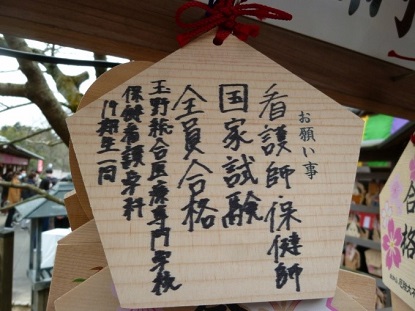 お願い事
看護師保健師
国家試験
全員合格
玉野総合医療専門学校
保健看護学科
19期生一同
合格